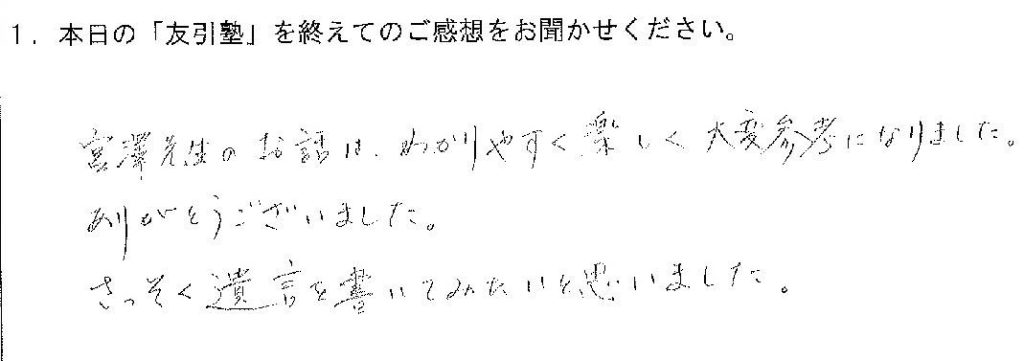 1．本日の「友引塾」を終えてのご感想をお聞かせください。
宮澤先生のお話は、わかりやすく楽しく大変参考になりました。
ありがとうございました。
さっそく遺言を書いてみたいと思いました。